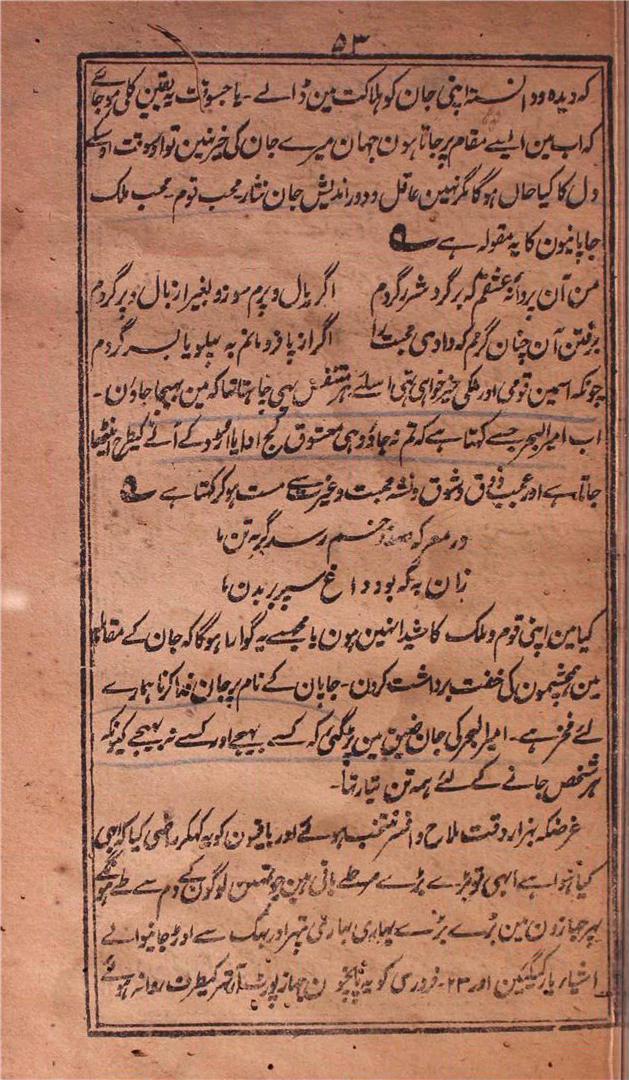 ۵۳
کہ دیدہ ودانستہ اپنی جان کو ہلاکت مین ڈالے ۔ یا جسوقت یہ یقین کلی ہو جائے
کہ اب مین ایسے مقام پر جاتا ہون جہان میرے جان کی خیر نہین تو اوسوقت اوسکے
دل کا کیا حال ہوگا مگر نہین عاقل و دور اندیش جان نثار محب قوم ۔ محب ملک
جاپانیون کا یہ مقولہ ہے
من آن پروانۂ عشقم کہ بر گرد شرر گردم اگر بال و پرم سوزد بغیر از بال و پر گردم
برفتن آن چنان گرمم کہ در وادی محبت را اگر از پا فرو مانم بہ پہلو یا بسر گردم
چونکہ اسمین قومی اور ملکی خیرخواہی تھی اسلئے ہر متنفس یہی چاہتا تھا کہ مین بھیجا جاؤن ۔
اب امیر البحر جسے کہتا ہے کہ تم نہ جاؤ وہی معشوق کج ادا یا اکڑ کے آئے کیطرح اینٹھا
جاتا ہے اور عجب ذوق و شوق و نشہ محبت و غیرت سے مست ہو کر کہتا ہے
در معرکہ صد زخم رسد گر بہ تن ما
زان بہ کہ بود داغ سپر بر بدن ما
کیا مین اپنی قوم و ملک کا شیدا نہین ہون یا مجھسے یہ گوارا ہوگا کہ جان کے مقابلہ
مین ہمچشمون کی خفت برداشت کرون ۔ جاپان کے نام پر جان فدا کرنا ہمارے
لئے فخر ہے ۔ امیر البحر کی جان ضیق مین پڑگئی کہ کسے بھیجے اور کسے نہ بھیجے کیونکہ
ہر شخص جانے کے لئے ہمہ تن تیار تھا ۔
غرضکہ ہزار دقت ملاح و افسر منتخب ہوئے اور باقیون کو یہ کہکر راضی کیا کہ اجی
کیا ہوا ہے ابھی تو بڑے بڑے مرحلے باقی ہین جو تمہین لوگون کے دم سے طے ہونگے
پھر جہازون مین بڑے بڑے پہاڑی بھاری پتھر اور بھک سے اوڑ جانیوالے
اشیا بار کیگئین اور ۲۳ ۔ فروری کو یہ پانچون جہاز پورٹ آرتھر کیطرف روانہ ہوئے